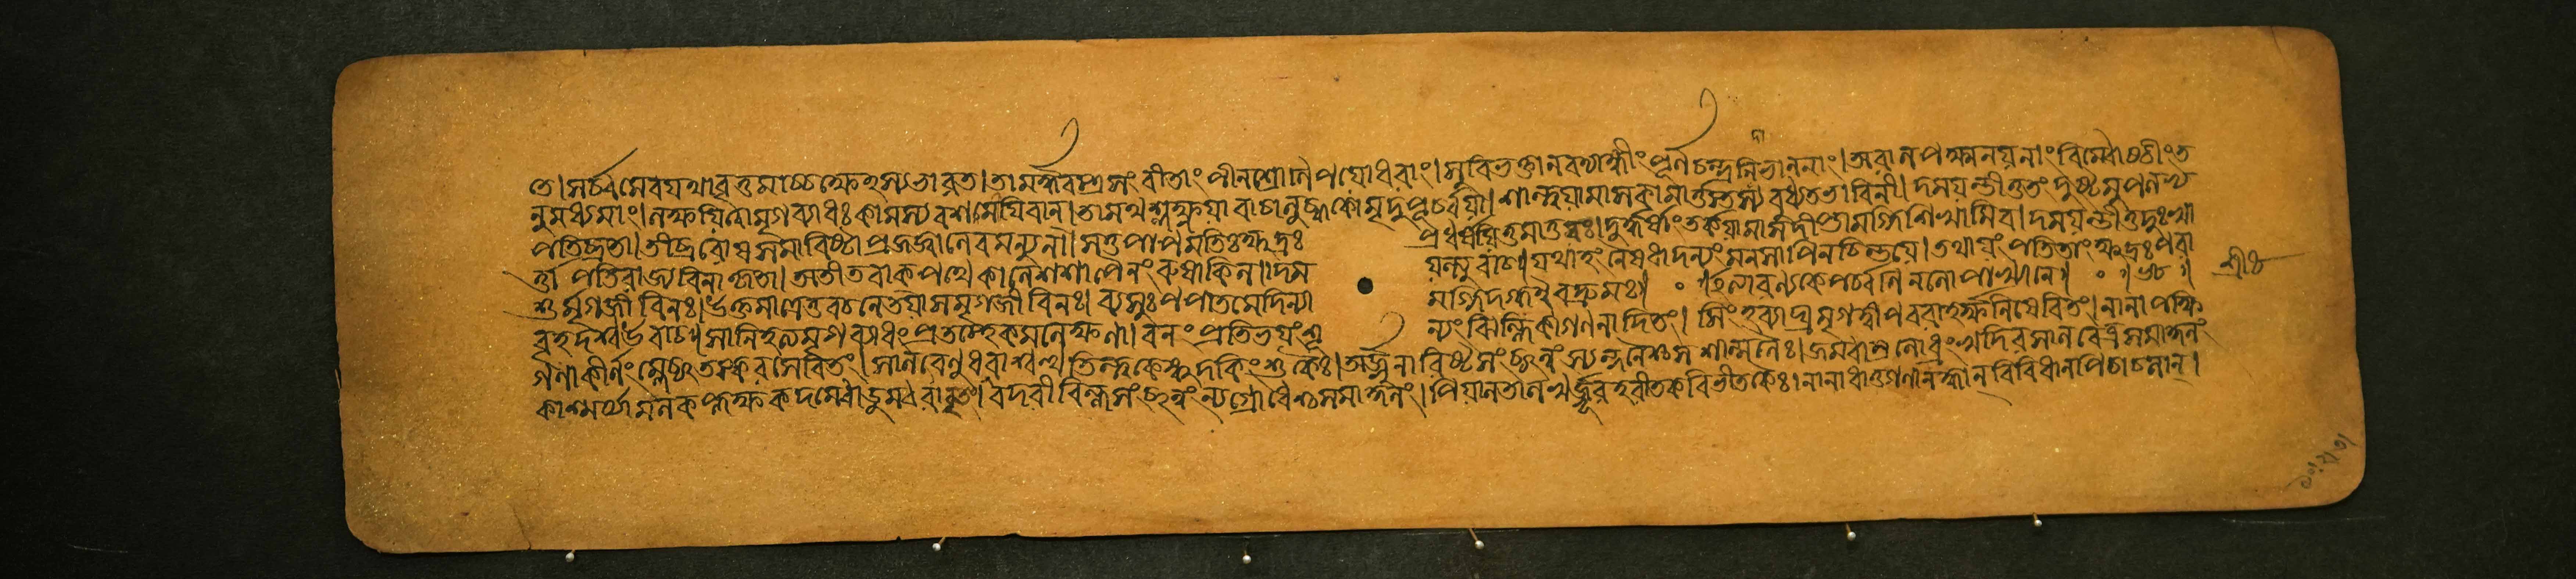 তে।সৰ্ব্বমেবযথাবৃত্তমাচচক্ষেঽস্যভাৰত।তামৰ্দ্ধবস্ত্ৰসংবীতাংপীনশ্ৰোণিপয়োধৰাং।সুবিভক্তানবদ্যাঙ্গীংপূৰ্ণচন্দ্ৰনিভাননাং।অৰালপক্ষ্মনয়নাংবিম্বোষ্ঠীংত
নুমধ্যমাং।লক্ষয়িত্বামৃগব্যাধঃকামস্যবশমেয়িবান্।তামথশ্লক্ষ্ণয়াবাচালুব্ধকোমৃদুপূৰ্ব্বয়া।শান্ত্বয়ামাসকামাৰ্ত্তস্তস্যবধ্যতভাবিনী।দময়ন্তীতুতংদুষ্টমুপলভ্য
পতিব্ৰতা।তীব্ৰৰোষসমাবিষ্টাপ্ৰজজ্বালেবমন্যুনা।সতুপাপমতিঃক্ষুদ্ৰঃ প্ৰধৰ্ষয়িতুমাতুৰঃ।দুৰ্দ্ধৰ্ষাংতৰ্কয়ামাসদীপ্তামগ্নিশিখামিব।দময়ন্তীতুদুঃখা
ৰ্ত্তা পতিৰাজ্যবিনাকৃতা।অতীতবাক্পথেকালেশশাপৈনংৰুষাকিল॥দম য়ন্ত্যুবাচ॥যথাহংনৈষধাদন্যংমনসাপিনচিন্তয়ে।তথায়ংপতিতাংক্ষুদ্ৰঃপৰা
শুৰ্মৃগজীবিনঃ।উক্তমাত্ৰেতুবচনেতয়াসমৃগজীবিনঃ।ব্যসুঃপপাতমেদিন্যা মগ্নিদগ্ধইবদ্ৰুমঃ॥ ॰ ॥ইত্যাৰণ্যকেপৰ্ব্বণিনলোপাখ্যানে॥ ॰ ॥
বৃহদশ্বউবাচ॥সানিহত্যমৃগব্যাধংপ্ৰতস্থেকমলেক্ষণা।বনংপ্ৰতিভয়ংশূ ন্যংঝিল্লিকাগণনাদিতং। সিংহব্যাঘ্ৰমৃগদ্বীপবৰাহৰ্ক্ষনিষেবিতং।নানাপক্ষি
গণাকীৰ্ণংম্লেচ্ছতস্কৰসেবিতং।সালবেণুধবাশ্বত্থতিন্দুকেঙ্গুদকিংশুকৈঃ।অৰ্জ্জুনাৰিষ্টসংচ্ছন্নংস্যন্দনৈশ্চসশাল্মলৈঃ।জম্বাম্ৰলোধ্ৰখদিৰসালবেত্ৰসমাকুলং
কাশ্মৰ্য্যামলকপ্লক্ষকদম্বোডুম্বৰাবৃতং।বদৰীবিল্বসংচ্ছন্নংন্যগ্ৰোধৈশ্চসমাকুলং।পিয়ালতালখৰ্জ্জূৰহৰীতকবিভীতকৈঃ।নানাধাতুগণানদ্ধান্বিবিধানপিচাচলান্।